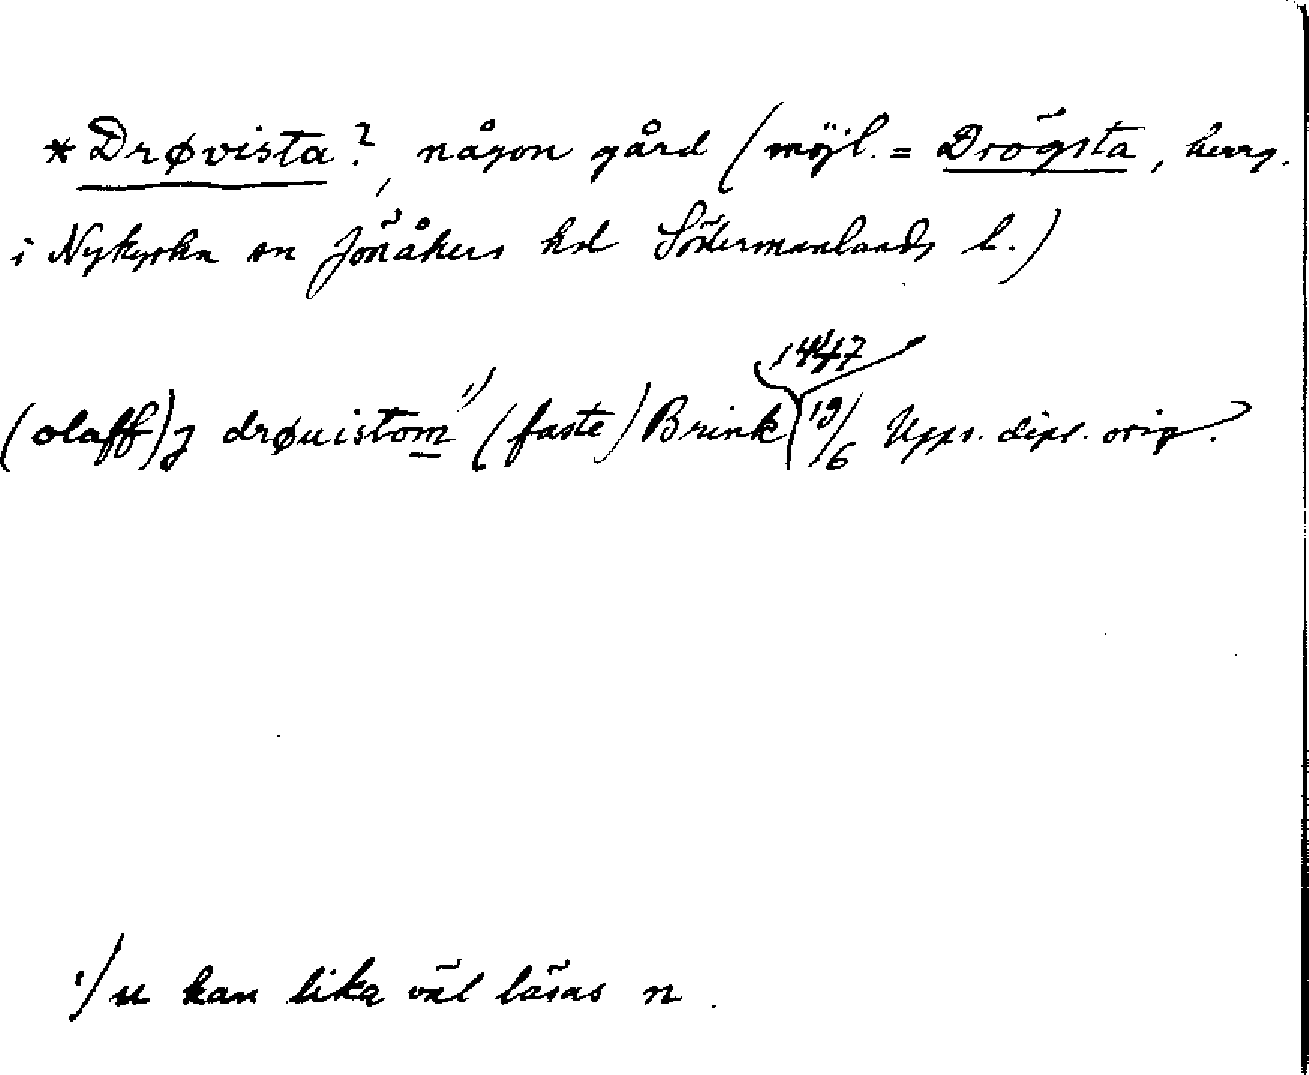 *Drøvista?, någon gård (möjl. = Drögsta, herrg.
i Nykyrka sn Jönåkers hd Södermanlands l.)
1447
(olaff) j drøuistom 1) (faste) Brink 19/6 Upps. dipl. orig.
1) u kan lika väl läsas n.